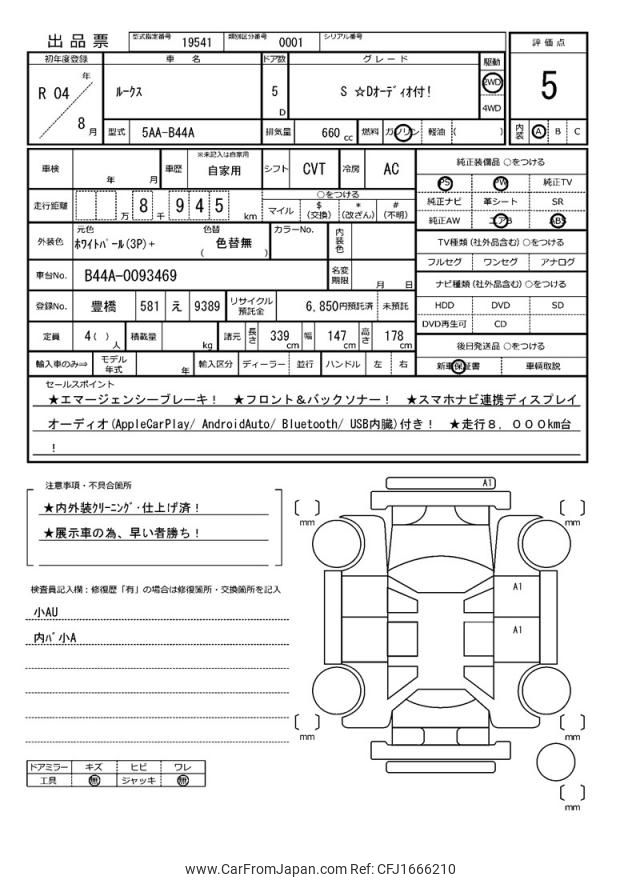 出品票 型式指定番号 19541 類別区分番号 0001 シリアル番号
評価点
5
内装 A B C
初年度登録 車名 ドア数 グレード 駆動
R 04 年 8 月
ルークス 5 D S ☆Dオーディオ付！ 2WD 4WD
型式 5AA-B44A 排気量 660 cc 燃料 ガソリン 軽油 ( )
車検 年 月 車歴 ※未記入は自家用 自家用 シフト CVT 冷房 AC
走行距離 万 8 千 9 4 5 km ○をつける
マイル $(交換) *(改ざん) #(不明)
外装色 元色 ﾎﾜｲﾄﾊﾟｰﾙ(3P)+ 色替 ( 色替無 ) カラーNo. 内装色
車台No. B44A-0093469 名変期限 月 日
登録No. 豊橋 581 え 9389 リサイクル預託金 6,850円預託済 未預託
定員 4( )人 積載量 kg 諸元 長さ 339 cm 幅 147 cm 高さ 178 cm
輸入車のみ⇒ モデル年式 年 輸入区分 ディーラー 並行 ハンドル 左 右
純正装備品 ○をつける
PS PW 純正TV
純正ナビ 革シート SR
純正AW エアB ABS
TV種類 (社外品含む) ○をつける
フルセグ ワンセグ アナログ
ナビ種類 (社外品含む) ○をつける
HDD DVD SD
DVD再生可 CD
後日発送品 ○をつける
新車保証書 車輌取説
セールスポイント
★エマージェンシーブレーキ！ ★フロント＆バックソナー！ ★スマホナビ連携ディスプレイ
オーディオ(AppleCarPlay/ AndroidAuto/ Bluetooth/ USB内臓)付き！ ★走行８，０００km台
！
注意事項・不具合箇所
★内外装ｸﾘｰﾆﾝｸﾞ･仕上げ済！
★展示車の為、早い者勝ち！
検査員記入欄：修復歴「有」の場合は修復箇所・交換箇所を記入
小AU
内ﾊﾞ小A
ドアミラー キズ ヒビ ワレ
工具 無 ジャッキ 無
A1
[ ] mm
[ ] mm
A1
A1
[ ] mm
[ ] mm
[ ] mm
www.CarFromJapan.com Ref: CFJ1666210